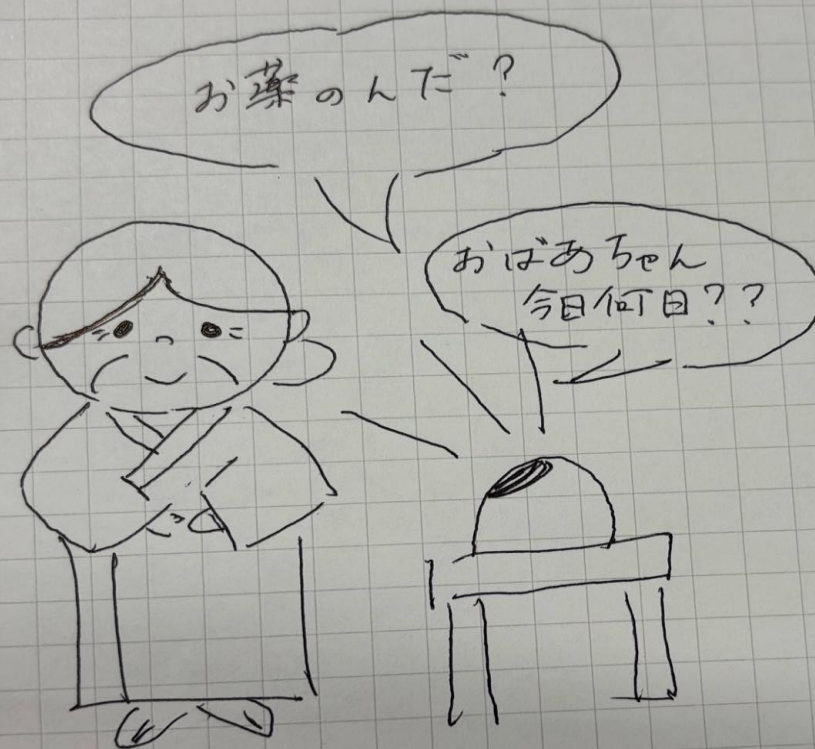 お薬のんだ？
おばあちゃん
今日何日？？